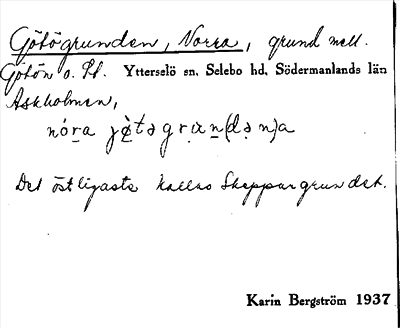 Götögrunden, Norra, grund mell.
Götön o. St. Ytterselö sn. Selebo hd. Södermanlands län
Askholmen,
nóra jø̀təgrun(də n)a
Det östligaste kallas Skeppargrundet.
Karin Bergström 1937